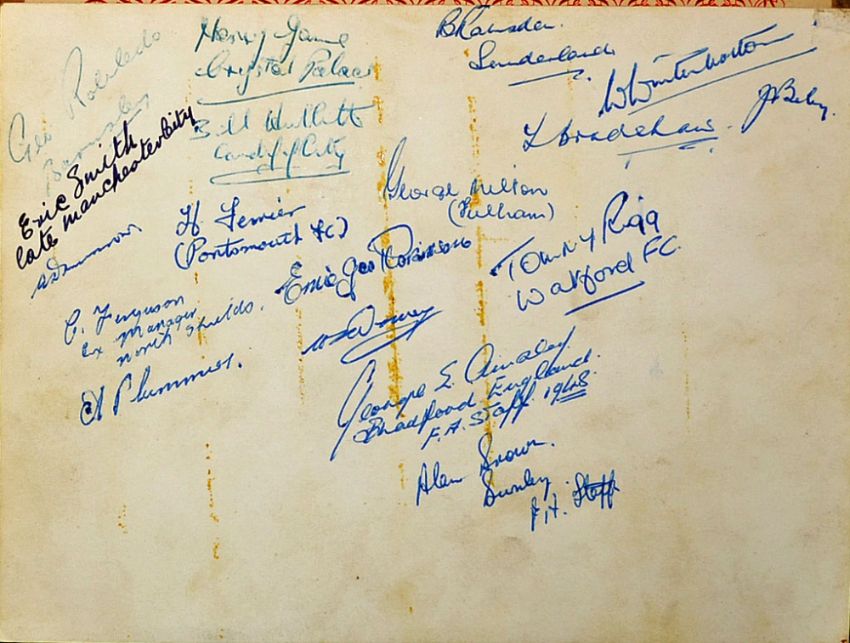 Geo Robledo
Barnsley
Henry
Crystal Palace
Bill
Cardiff City
B Ramsden.
Sunderland
W Winterbottom
J. Bradshaw.
Eric Smith
late Manchester City
H Ferrier
(Portsmouth FC)
George Milton
(Fulham)
Tommy Rigg
Watford F.C.
Eric Geo Robinson
C. Ferguson
Ex Manager
North Shields.
Plummer.
George E. Ainsley
Bradford England.
F.A. Staff. 1948.
Alan Brown.
Burnley.
F.A. Staff